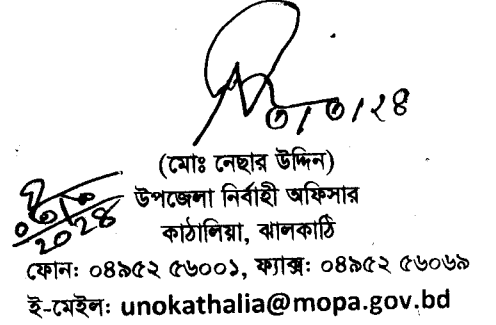 ৩/৩/২৪
(মোঃ নেছার উদ্দিন)
উপজেলা নির্বাহী অফিসার
কাঠালিয়া, ঝালকাঠি
ফোন: ০৪৯৫২ ৫৬০০১, ফ্যাক্স: ০৪৯৫২ ৫৬০৬৯
ই-মেইল: unokathalia@mopa.gov.bd